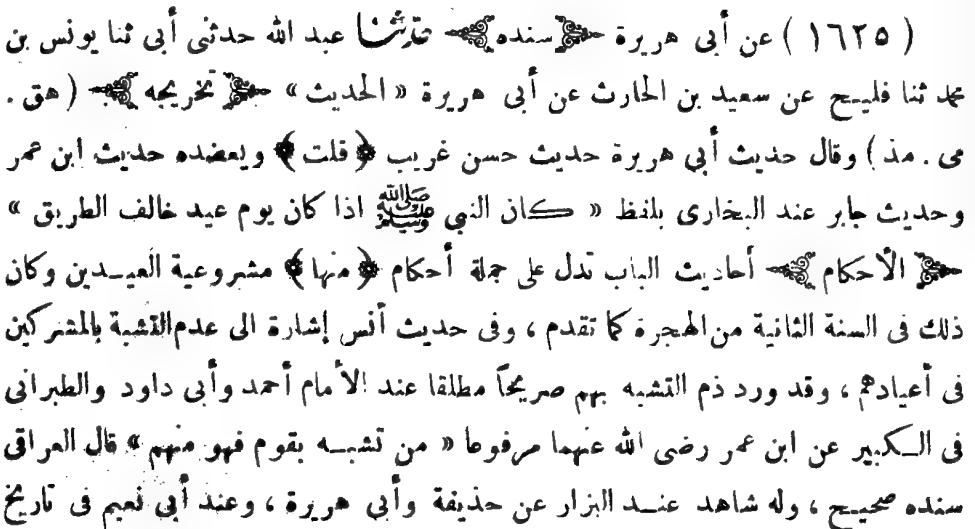 ( ١٦٢٥ ) عن أبى هريرة ﴿سنده﴾ حدّثنا عبد الله حدثنى أبى ثنا يونس بن
محمد ثنا فليح عن سعيد بن الحارث عن أبى هريرة « الحديث » ﴿تخريجه﴾ ( هق .
مى . مذ ) وقال حديث أبى هريرة حديث حسن غريب ﴿قلت﴾ ويعضده حديث ابن عمر
وحديث جابر عند البخارى بلفظ « كان النبي ﷺ اذا كان يوم عيد خالف الطريق »
﴿الأحكام﴾ أحاديث الباب تدل على جملة أحكام ﴿منها﴾ مشروعية العيدين وكان
ذلك فى السنة الثانية من الهجرة كما تقدم ، وفى حديث أنس إشارة الى عدم التشبة بالمشركين
فى أعيادهم ، وقد ورد ذم التشبه بهم صريحاً مطلقا عند الأمام أحمد وأبى داود والطبرانى
فى الكبير عن ابن عمر رضى الله عنهما مرفوعا « من تشبه بقوم فهو منهم » قال العراقى
سنده صحيح ، وله شاهد عند البزار عن حذيفة وأبى هريرة ، وعند أبى نعيم فى تاريخ